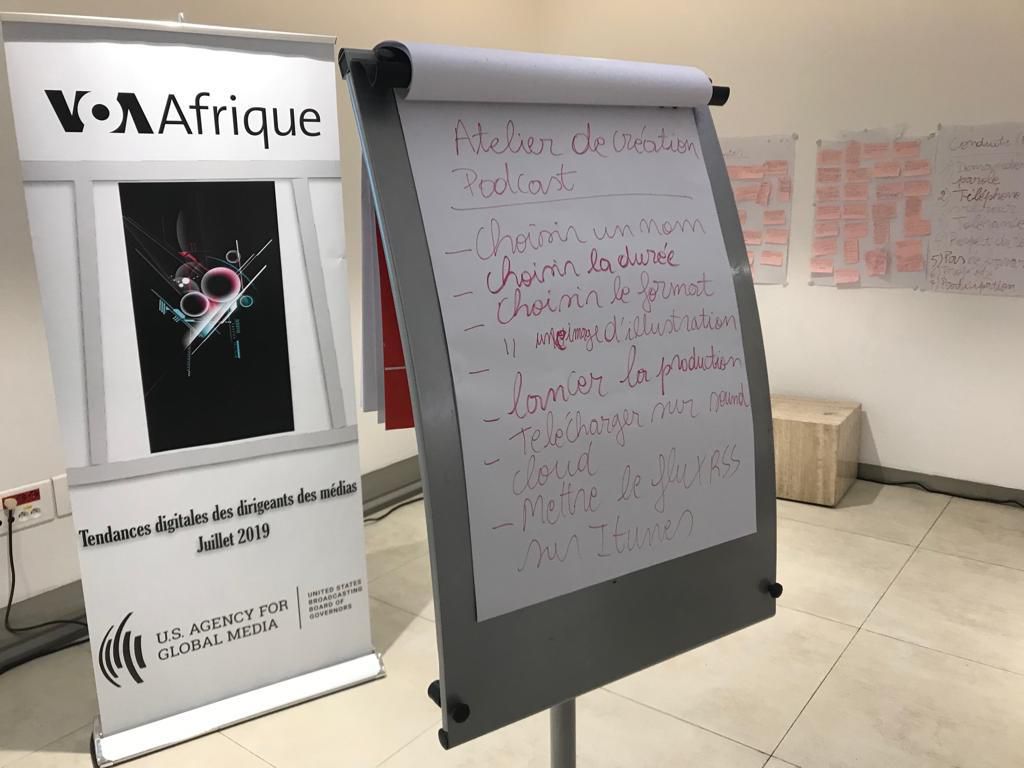 VOA Afrique
Tendances digitales des dirigeants des médias
Juillet 2019
U.S. AGENCY FOR
GLOBAL MEDIA
UNITED STATES
BROADCASTING
BOARD OF
GOVERNORS
Atelier de création
Podcast
- Choisir un nom
- Choisir la durée
- Choisir le format
- " une image d'illustration
- lancer la production
- Télécharger sur sound
cloud
- Mettre le flux RSS
sur Itunes
2) Téléphone
Participation